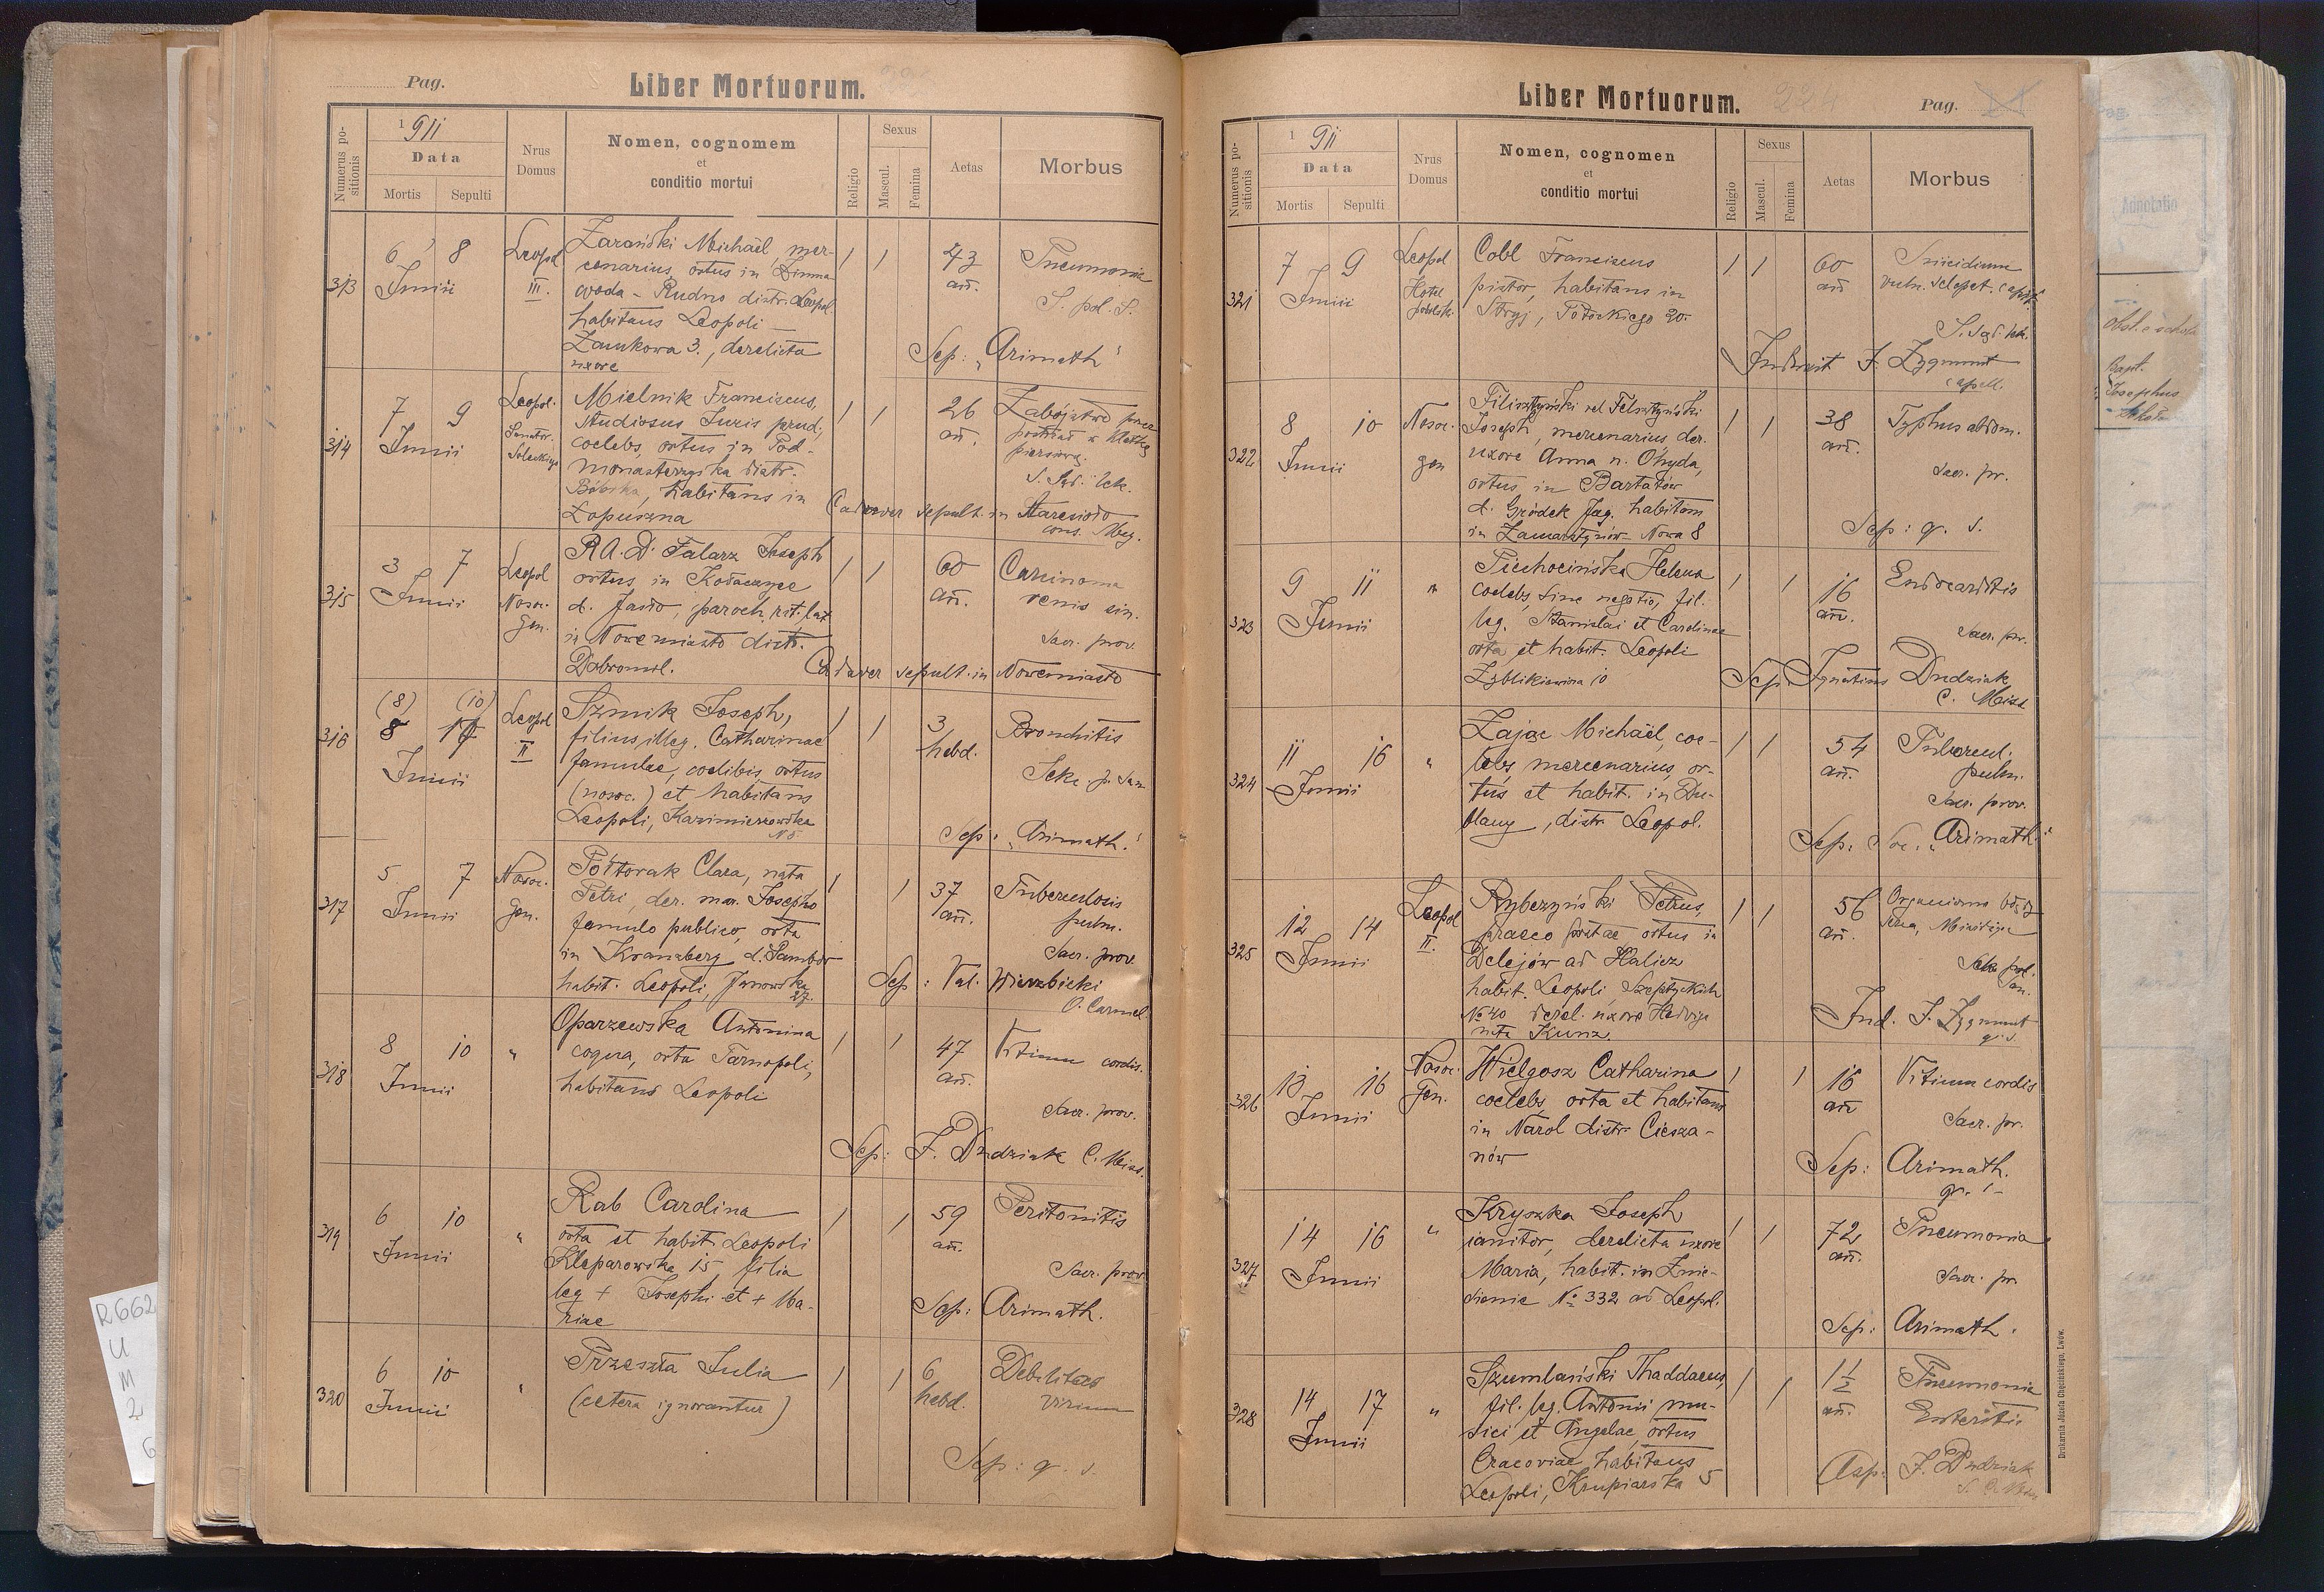 Pag.
Liber Mortuorum.
Numerus positionis
1911
Data
Mortis
Sepulti
Nrus
Domus
Nomen, cognomem
et
conditio mortui
Religio
Sexus
Mascul.
Femina
Aetas
Morbus
313
6 8
Junii
Leopol
III.
Zarański Michaël, mer-
cenarius, ortus in Zimna-
woda - Rudno distr. Leopol.
habitans Leopoli -
Zamkowa 3., derelicta
uxore
1 1
43
an̄.
Pneumonia
S. pol. S.
Sep: "Arimath"
314
7 9
Junii
Leopol.
Sanator.
Soleckiego
Mielnik Franciscus,
studiosus Juris prud.,
coelebs, ortus in Pod-
monasterzyska distr.
Bóbrka, habitans in
Łopuszna
1 1
26
an̄.
Zabójstwo przez
postrzał w klatkę
piersiową.
S. Sąd. lek.
Cadaver sepult. in Staresioło
315
3 7
Junii
Leopol
Nosoc.
gen.
R.A.D. Falarz Joseph
ortus in Kołaczyce
d. Jasło, paroch. rit. lat
in Nowemiasto distr.
Dobromil.
1 1
60
an̄.
Carcinoma
renis sin.
Sacr. prov.
Cadaver sepult. in Nowemiasto
316
(8) (10)
8
Junii
Leopol
II
Szmik Joseph,
filius illeg. Catharinae
famulae, coelibis, ortus
(nosoc.) et habitans
Leopoli, Kazimierzowska
N 5
1 1
3
hebd.
Bronchitis
Sep: "Arimath."
317
5 7
Junii
Nosoc.
gen.
Półtorak Clara, nata
Petri, der. mar. Josepho
famulo publico, orta
in Kranzberg d. Sambor
habit. Leopoli, Janowska
27.
1 1
37
an̄.
Tuberculosis
pulm.
Sacr. prov.
Sep: Val. Wierzbicki
O. Carmel.
318
8 10
Junii
"
Oparzewska Antonina
coqua, orta Tarnopoli,
habitans Leopoli
1 1
47
an̄.
Vitium cordis.
Sacr. prov.
Sep: J. Dudziak C. Miss.
319
6 10
Junii
"
Rab Carolina
orta et habit. Leopoli
Kleparowska 15, filia
leg + Josephi et + Ma-
riae
1 1
59
an̄.
Peritonitis
Sacr. prov.
Sep: Arimath.
320
6 10
Junii
"
Przeszła Julia
(cetera ignorantur)
1 1
6
hebd.
Debilitas
virium
Sep: q. s.
Liber Mortuorum.
224
Pag.
Numerus positionis
1911
Data
Mortis
Sepulti
Nrus
Domus
Nomen, cognomen
et
conditio mortui
Religio
Sexus
Mascul.
Femina
Aetas
Morbus
321
7 9
Junii
Leopol
Hotel
Cobl Franciscus
pistor, habitans in
Stryj, Potockiego 20.
1 1
60
an̄
Suicidium
vuln. sclopet. capit.
Induxit J. Zygmunt
capell.
322
8 10
Junii
Nosoc.
gen
Filisztyński vel Felsztyński
Joseph, mercenarius der.
uxore Anna n. Ohyda,
ortus in Bartatów
d. Gródek Jag. habitans
in Zamarstynów Nowa 8
1 1
38
an̄.
Typhus abdom.
Sacr. pr.
Sep: q. s.
323
9 11
Junii
"
Piechocińska Helena
coelebs, sine negotio, fil.
leg. Stanislai et Carolinae
orta et habit. Leopoli
Zyblikiewicza 10
1 1
16
an̄.
Endocarditis
Sacr. pr.
Sep. Ignatius Dudziak
C. Miss
324
11 16
Junii
"
Zając Michaël, coe-
lebs mercenarius, or-
tus et habit. in Du-
blany, distr. Leopol.
1 1
54
an̄.
Tubercul.
pulm.
Sacr. prov.
Sep: Soc. "Arimath."
325
12 14
Junii
Leopol
II.
Rybczyński Petrus,
ortus in
Delejów ad Halicz
habit. Leopoli, Szeptyckich
No 40 derel. uxore Hedvige
nata Kunz.
1 1
56
an̄.
Ind. J. Zygmunt
q. s.
326
13 16
Junii
Nosoc.
Gen.
Wielgosz Catharina
coelebs, orta et habitans
in Narol distr. Ciesza-
nów
1 1
16
an̄
Vitium cordis
Sacr. pr.
Sep: Arimath.
327
14 16
Junii
"
Kryszka Joseph
ianitor, derelicta uxore
Maria, habit. in Znie-
sienie No 332 ad Leopol.
1 1
72
an̄.
Pneumonia
Sacr. pr.
Sep: Arimath.
328
14 17
Junii
"
Szumlański Thaddaeus,
fil. leg. Antonii mu-
sici et Angelae, ortus
Cracoviae, habitans
Leopoli, Krupiarska 5
1 1
1 1/2
an̄.
Pneumonia
Enteritis
Sep: J. Dudziak
Drukarnia Józefa Chęcińskiego, Lwów.
Annotatio
Bapt.
Josephus
R662
U
M
2
6